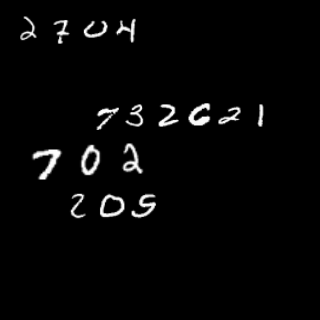 2704
732621
702
205